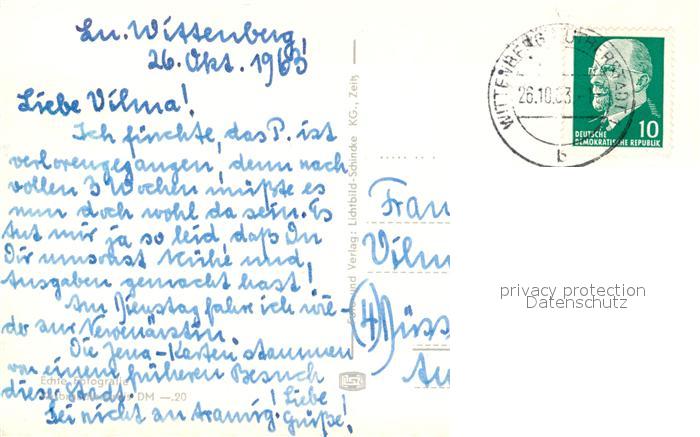 Lu. Wittenberg,
26. Okt. 1963
Liebe Vilma!
Ich fürchte, das P. ist
verlorengegangen, denn nach
vollen 3 Wochen müßte es
nun doch wohl da sein. Es
tut mir ja so leid, daß Du
Dir umsonst Mühe und
Ausgaben gemacht hast!
Am Dienstag fahre ich wie-
der zur Nervenärztin.
Die Jena-Karten stammen
von einem früheren Besuch
dieser Stadt.
Sei nicht an Liebe
Grüße!
Echte Fotografie
DM —.20
Foto und Verlag: Lichtbild-Schincke KG., Zeitz
WITTENBERG LUTHERSTADT
26.10.63
b
10
DEUTSCHE
DEMOKRATISCHE REPUBLIK
Frau
Vilm
(4)
privacy protection
Datenschutz